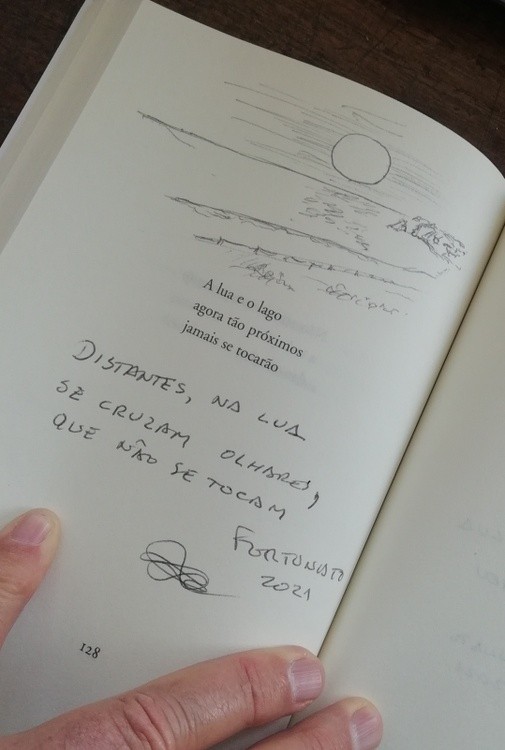 A lua e o lago
agora tão próximos
jamais se tocarão
DISTANTES, NA LUA
SE CRUZAM OLHARES,
QUE NÃO SE TOCAM
FORTUNATO
2021
128